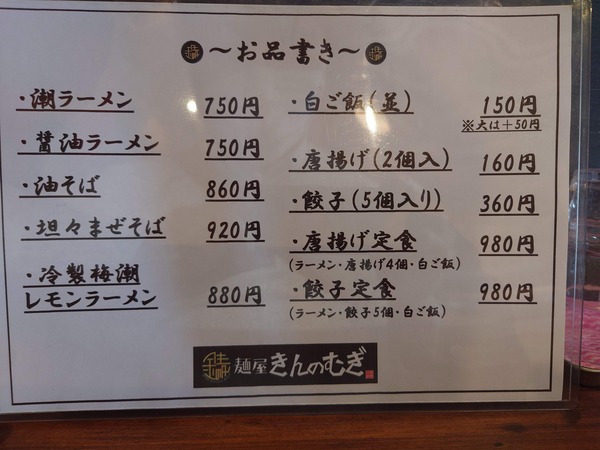 ～お品書き～
・潮ラーメン 750円
・醤油ラーメン 750円
・油そば 860円
・坦々まぜそば 920円
・冷製梅潮
レモンラーメン 880円
・白ご飯(並) 150円
※大は＋50円
・唐揚げ(2個入) 160円
・餃子(5個入り) 360円
・唐揚げ定食 980円
(ラーメン・唐揚げ4個・白ご飯)
・餃子定食 980円
(ラーメン・餃子5個・白ご飯)
麺屋 きんのむぎ